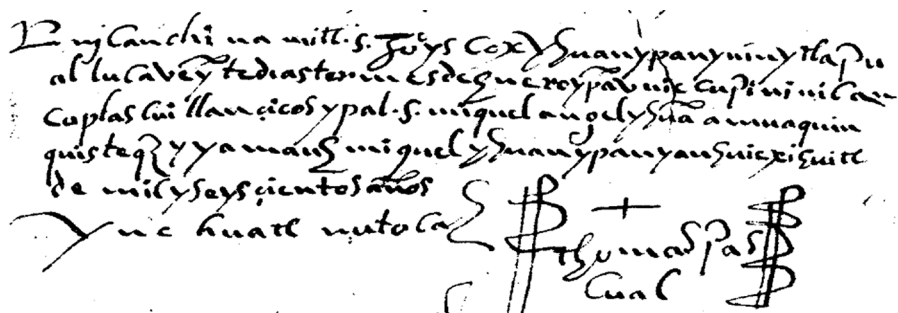 nican chi na mitl . s. Juº ys cox yhuan ypan ynin ytlapu
al lucaveynte dias ter mes de henero ypan nic cupi ni nican
coplas hui llançicos ypal . s. miguel angel yhua amnaquin
miguel yhuan ypan yanhuiexihuitl
de mil y seys çientos años
y ne huatl nutoca
thomas pas
cual